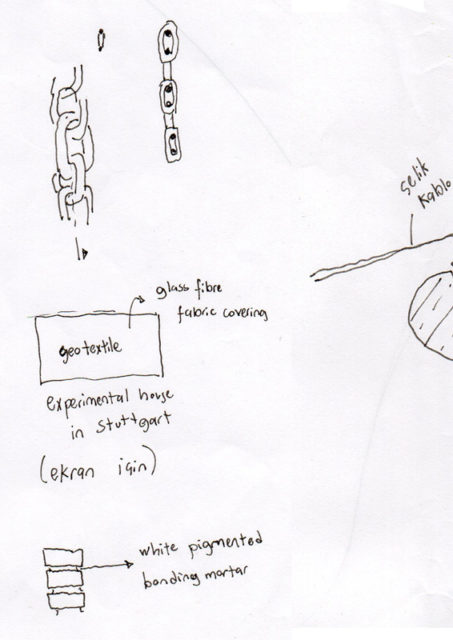 selik
kablo
glass fibre
fabric covering
geotextile
experimental house
in stuttgart
(ekran için)
white pigmented
bonding mortar